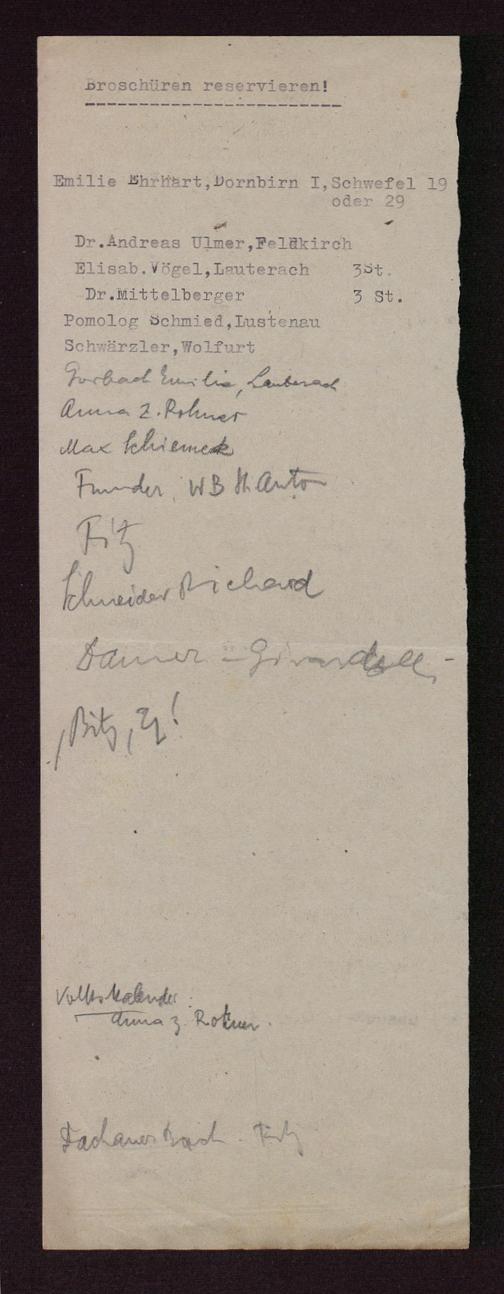 Broschüren reservieren!
Emilie Ehrhart,Dornbirn I,Schwefel 19
oder 29
Dr.Andreas Ulmer,Feldkirch
Elisab.Vögel,Lauterach 3St.
Dr.Mittelberger 3 St.
Pomolog Schmied,Lustenau
Schwärzler,Wolfurt
Gorbach Emilie, Lauterach
Anna z. Rohner
Max Schiemek
Funder, WB St. Anton
Fitz
Schneider Richard
Danner - Girardelli
Volkskalender:
Anna z. Rohner.
Dachauer Buch - Fitz